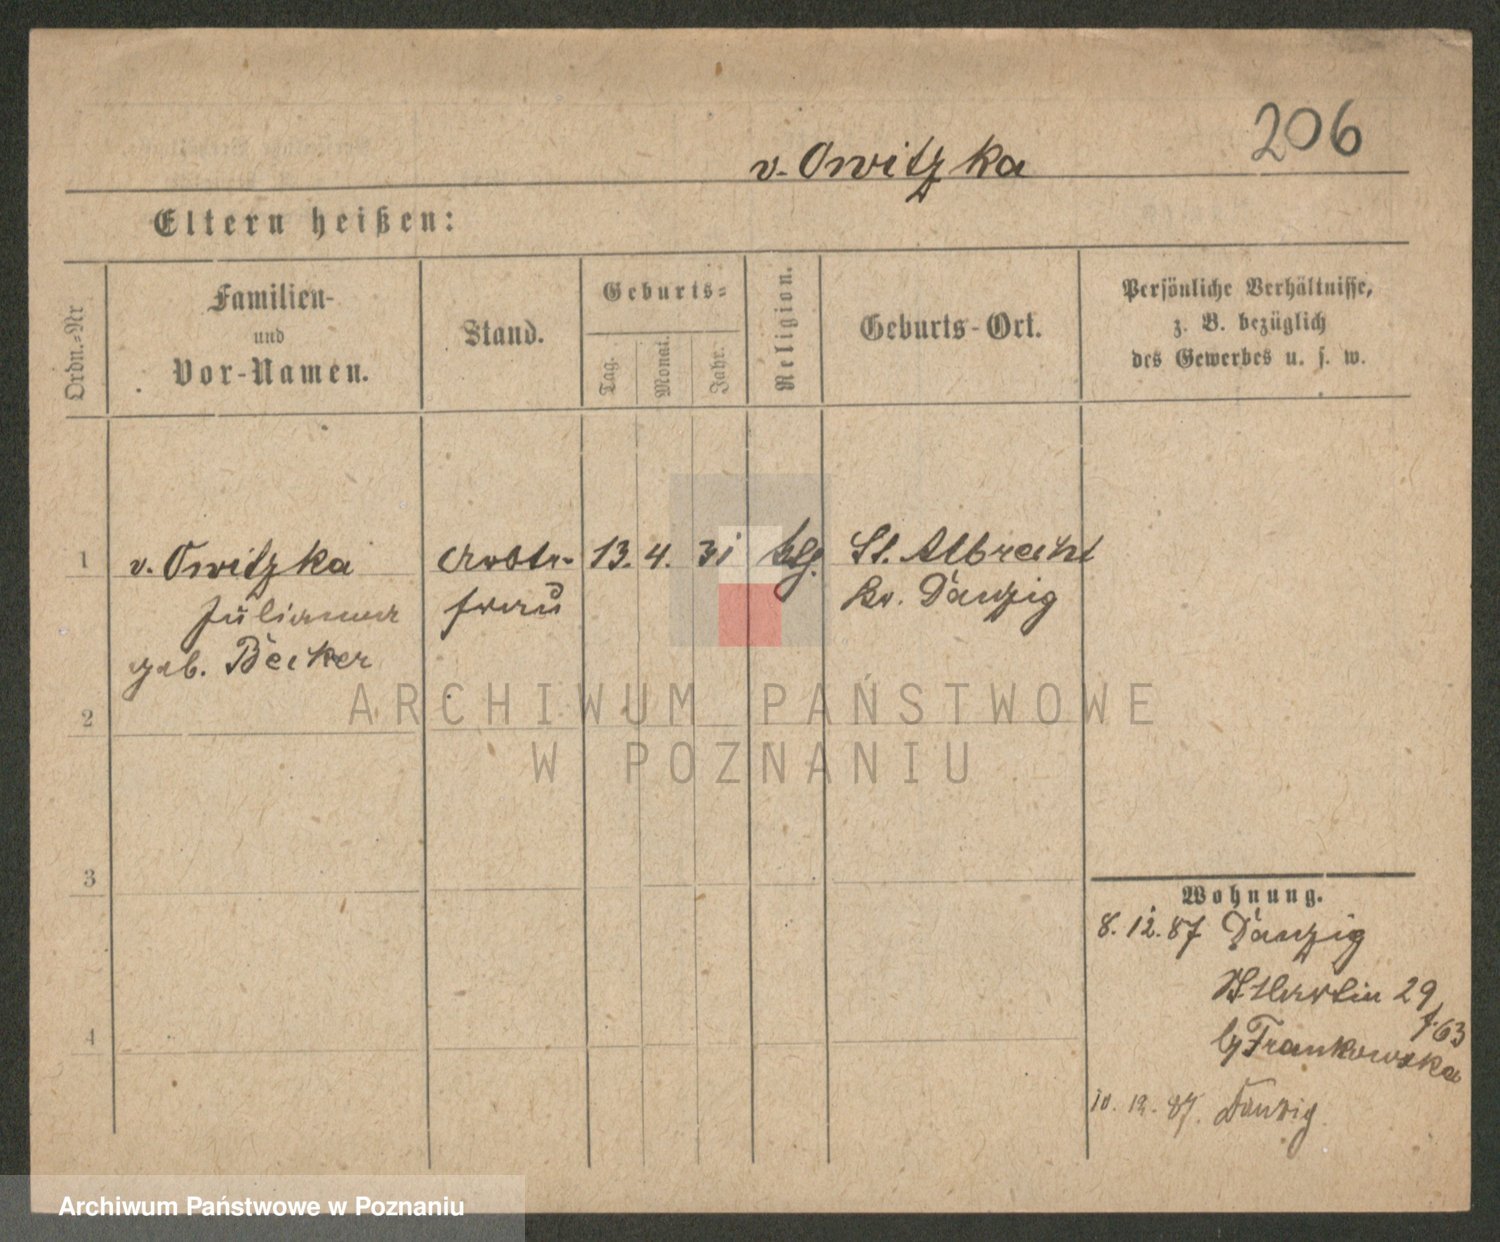 206
v. Owitzka
Eltern heißen:
Ordn.-Nr
Familien-
und
Vor-Namen.
Stand.
Geburts-
Tag.
Monat.
Jahr.
Religion.
Geburts-Ort.
Persönliche Verhältnisse,
z. B. bezüglich
des Gewerbes u. s. w.
1
v. Owitzka
Julianna
geb. Becker
frau
13. 4. 31
ktg.
St. Albrecht
Kr. Danzig
2
3
4
ARCHIWUM PAŃSTWOWE
W POZNANIU
Wohnung.
8. 12. 87 Danzig
St Martin 29
b/ Frankowska
10. 12. 87. Danzig
Archiwum Państwowe w Poznaniu